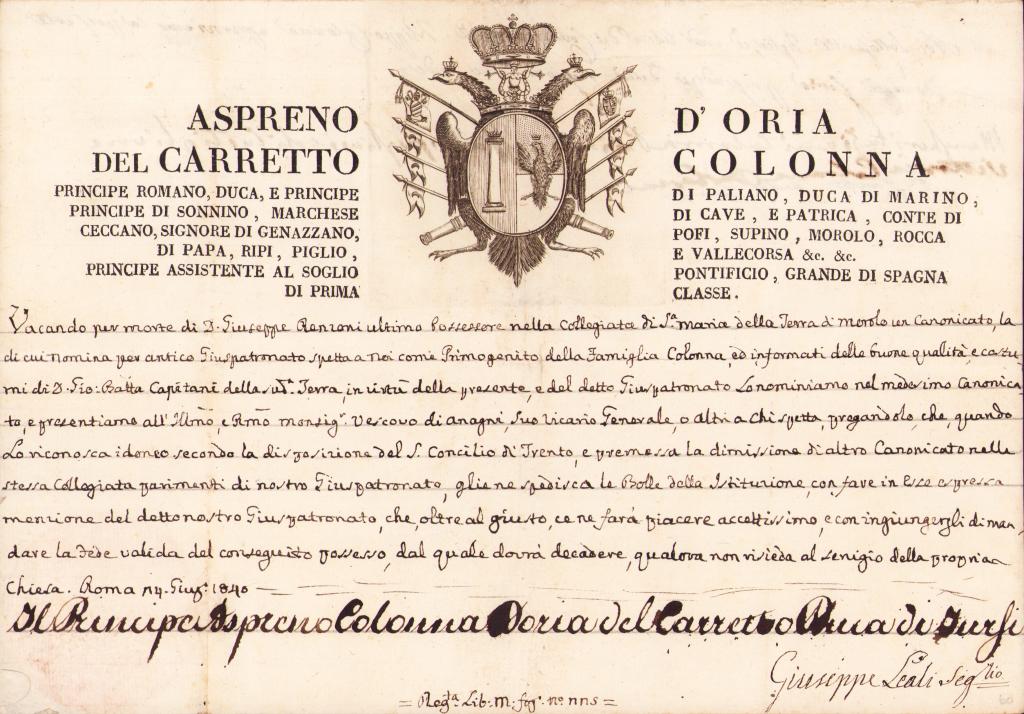 ASPRENO D'ORIA
DEL CARRETTO COLONNA
PRINCIPE ROMANO, DUCA, E PRINCIPE DI PALIANO, DUCA DI MARINO,
PRINCIPE DI SONNINO, MARCHESE DI CAVE, E PATRICA, CONTE DI
CECCANO, SIGNORE DI GENAZZANO, POFI, SUPINO, MOROLO, ROCCA
DI PAPA, RIPI, PIGLIO, E VALLECORSA &c. &c.
PRINCIPE ASSISTENTE AL SOGLIO PONTIFICIO, GRANDE DI SPAGNA
DI PRIMA CLASSE.
Vacando per morte di D. Giuseppe Renzoni ultimo Possessore nella Collegiata di S.ta Maria della Terra di Morolo un Canonicato, la
di cui nomina per antico Giuspatronato spetta a noi come Primogenito della Famiglia Colonna, ed informati delle buone qualità, e costu-
mi di D. Gio: Batta Capitani della sud.a Terra, in virtù della presente, e del detto Giuspatronato Lo nominiamo nel medesimo Canonica-
to, e presentiamo all' Illmo, e Rmo Monsig.r Vescovo di Anagni Suo Vicario Generale, o altri a chi spetta, pregandolo, che, quando
Lo riconosca idoneo secondo la disposizione del S. Concilio di Trento, e premessa la dimissione di altro Canonicato nella
stessa Collegiata parimenti di nostro Giuspatronato, gliene spedisca le Bolle della Istituzione, con fare in Esse espressa
menzione del detto nostro Giuspatronato, che, oltre al giusto, ce ne farà piacere accettissimo, e con ingiungergli di man-
dare la Fede valida del conseguito possesso, dal quale dovrà decadere, qualora non risieda al servigio della propria
Chiesa. Roma Giug.o 1840
Il Principe Aspreno Colonna Doria del Carretto Duca di Tursi
Giuseppe Leali Seg.rio
= Reg.ta Lib. M: fog.o no =